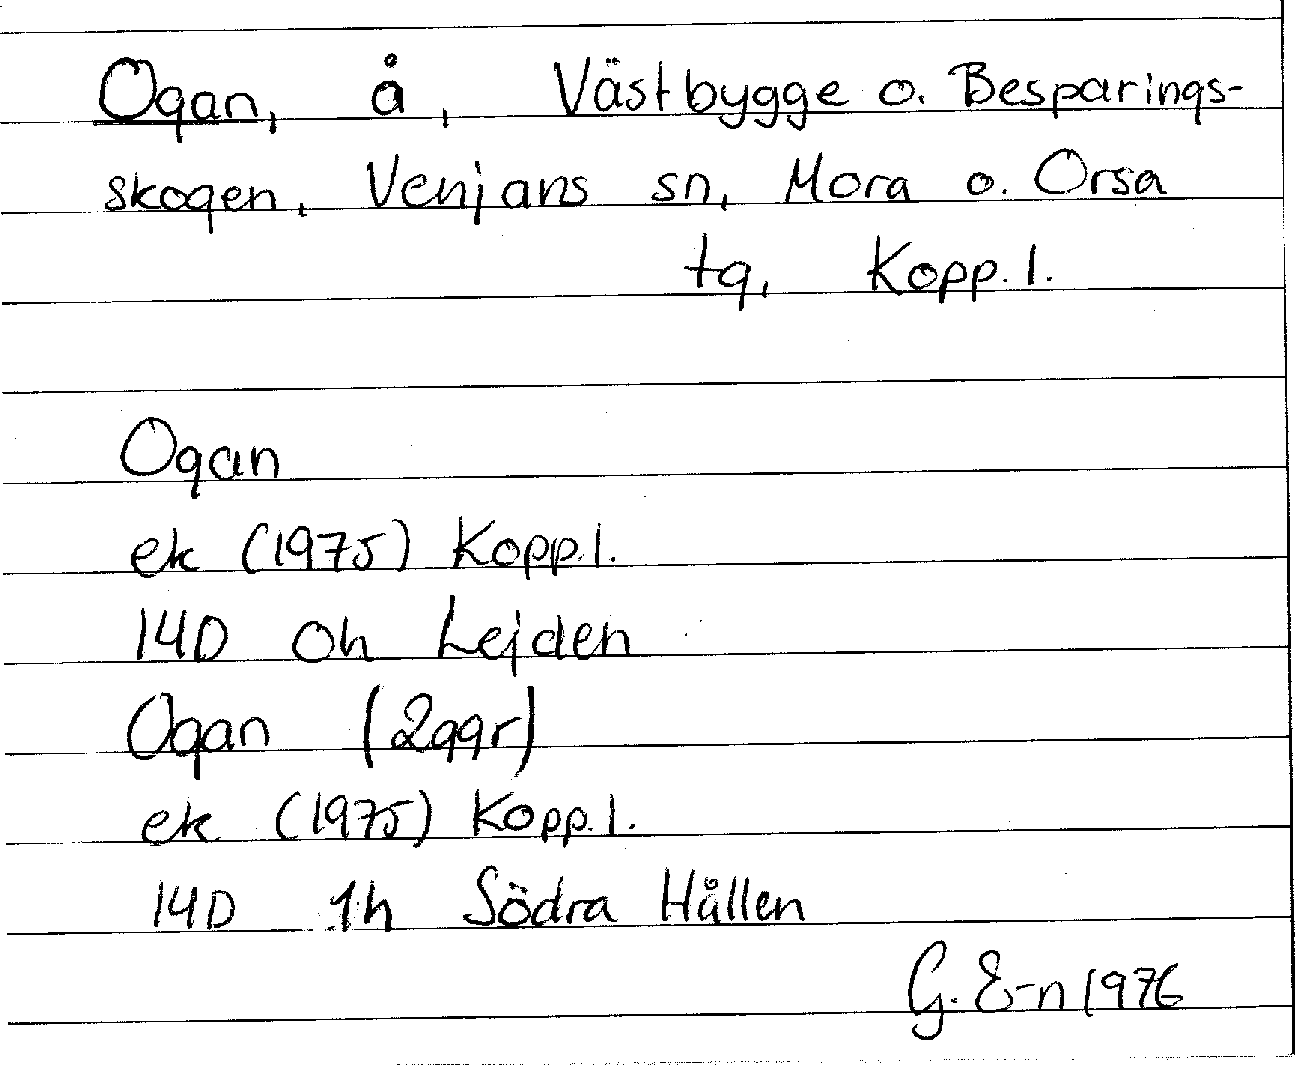 Ogan, å, Västbygge o. Besparings-
skogen, Venjans sn, Mora o. Orsa
tg, Kopp. l.
Ogan
ek (1975) Kopp. l.
14D 0h Lejden
Ogan (2ggr)
ek (1975) Kopp. l.
14D 1h Södra Hållen
G. E-n 1976